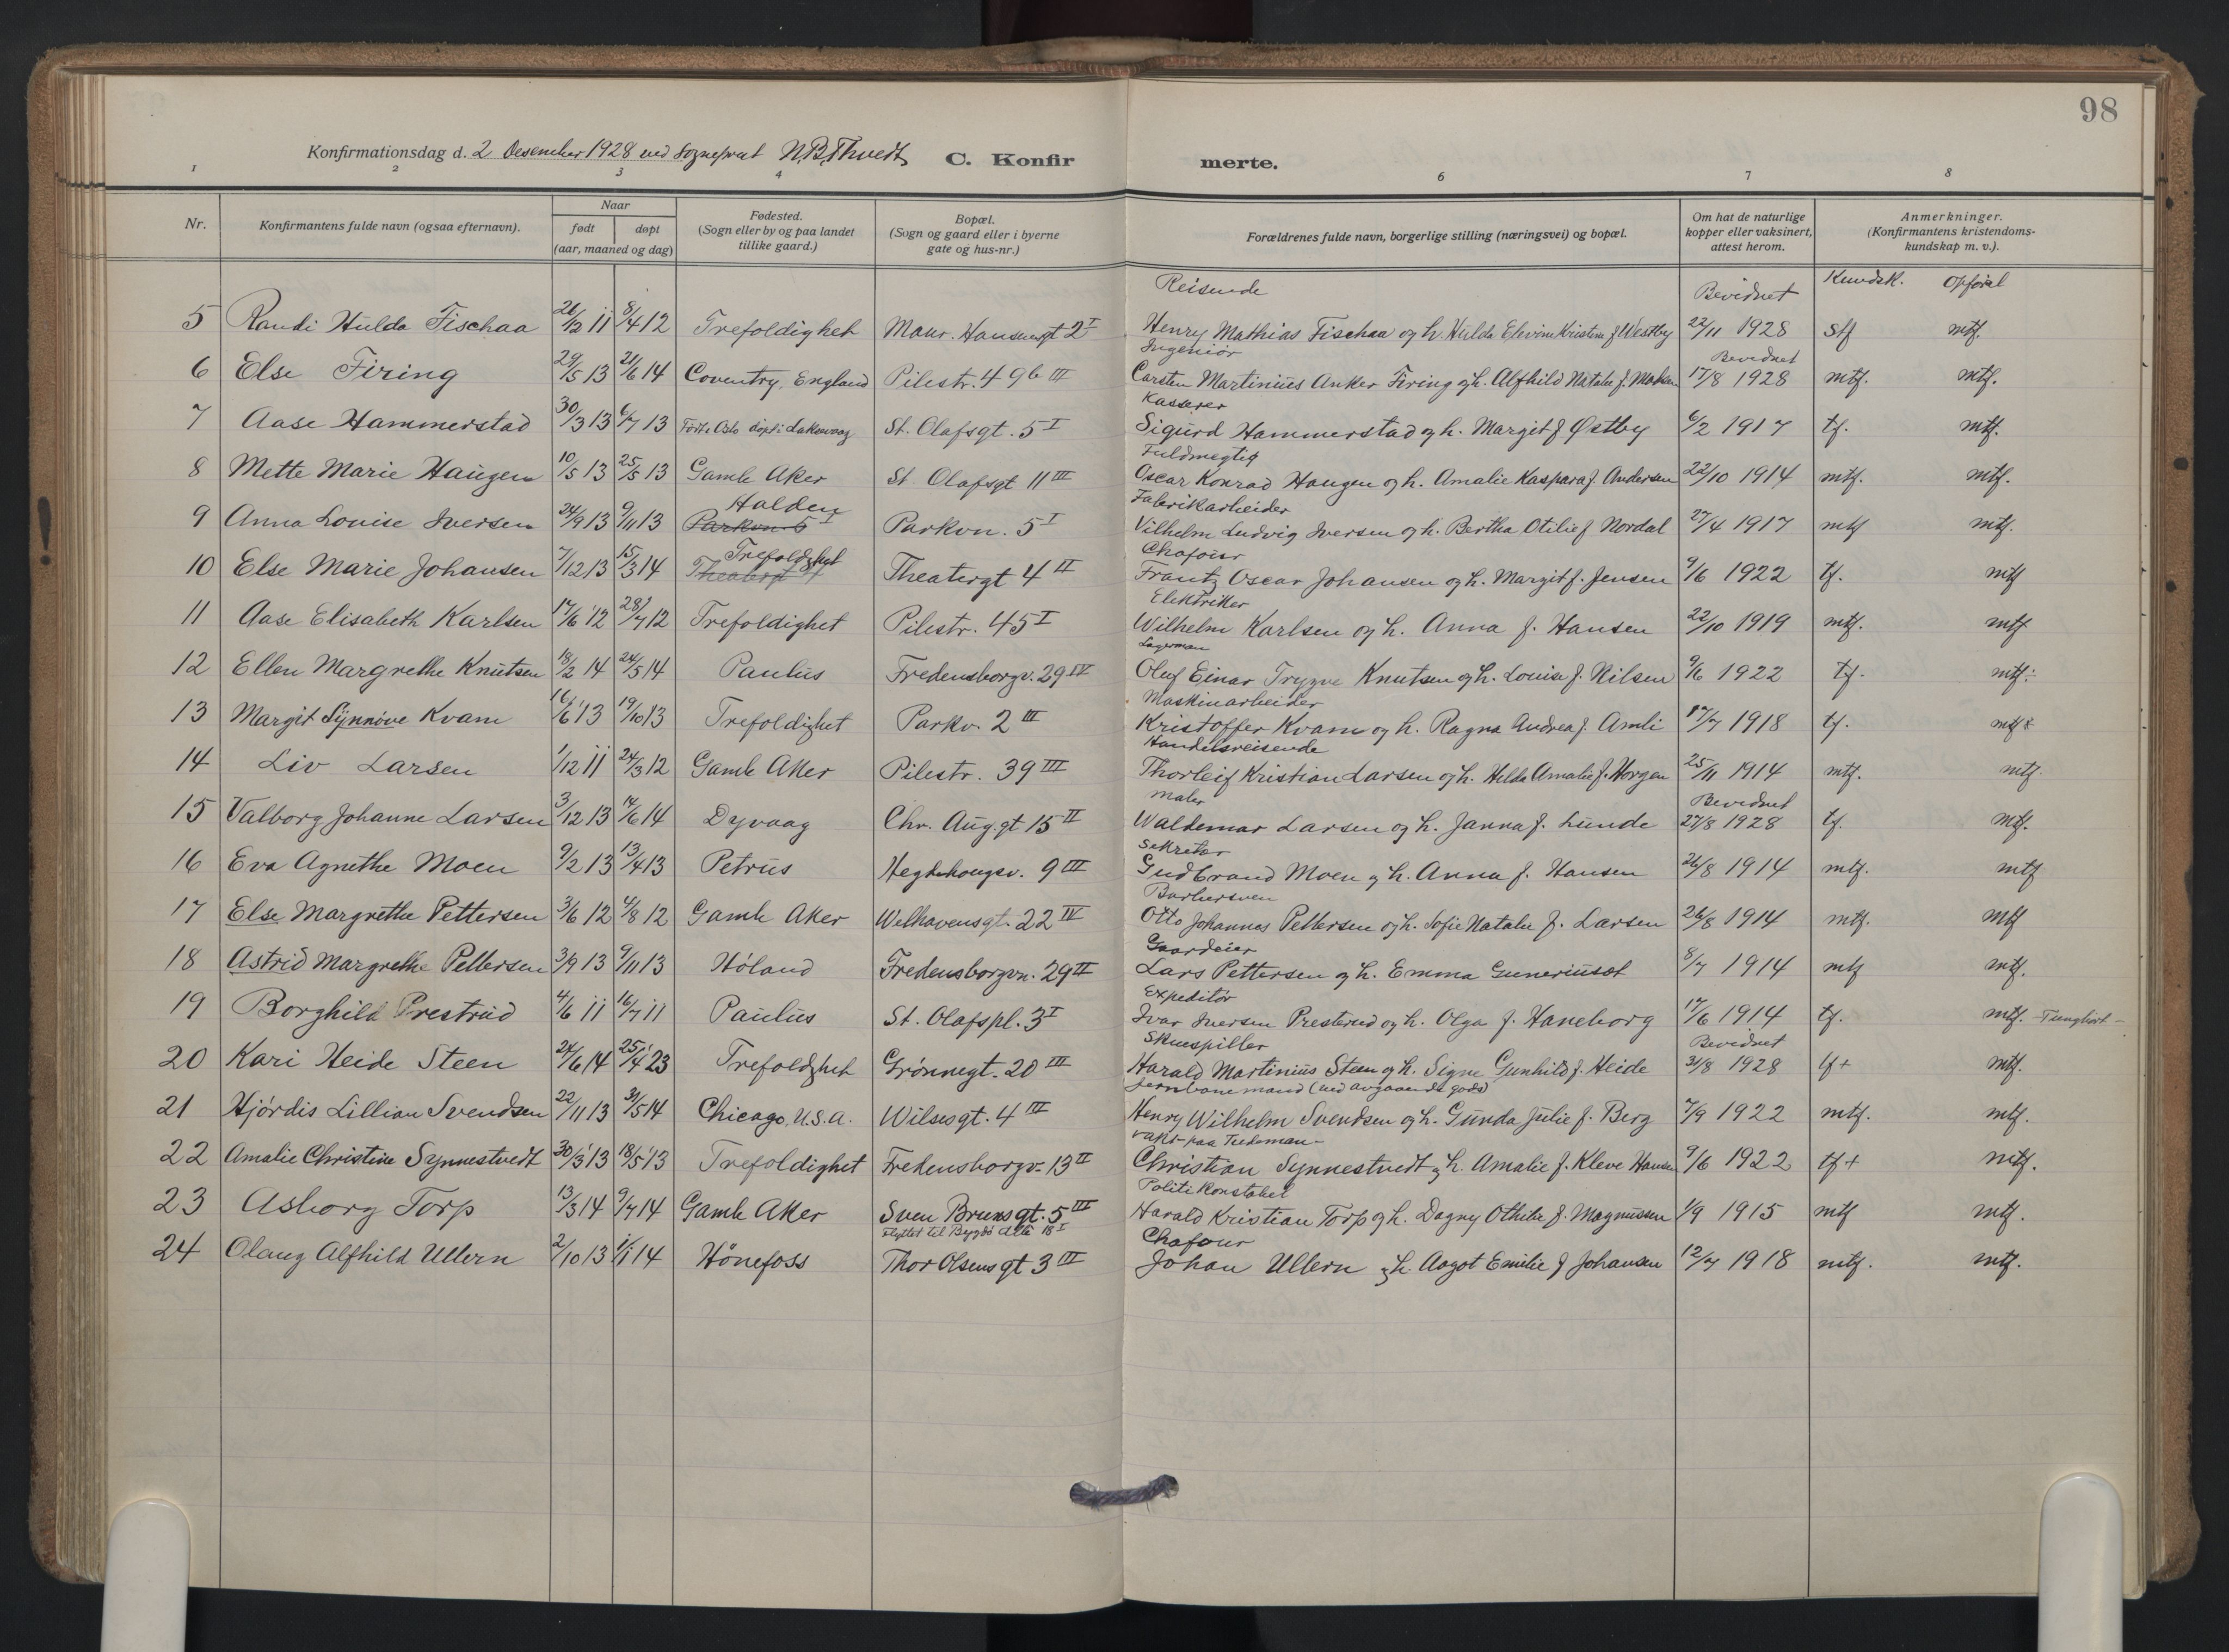 98
Konfirmationsdag d. 2 Desember 1928 ved sogneprest N.B. Thvedt C. Konfirmerte.
1 2 3 4 6 7 8
Nr. Konfirmantens fulde navn (ogsaa efternavn). Naar født døpt (aar, maaned og dag) Fødested. (Sogn eller by og paa landet tillike gaard.) Bopæl. (Sogn og gaard eller i byerne gate og hus-nr.) Forældrenes fulde navn, borgerlige stilling (næringsvei) og bopæl. Om hat de naturlige kopper eller vaksinert, attest herom. Anmerkninger. (Konfirmantens kristendomskundskap m. v.).
Reisende Bevidnet Kundsk. Opførsel
5 Randi Hulda Fischaa 26/12 11 8/4 12 Trefoldighet Maur. Hansensgt 2 I Henry Mathias Fischaa og h. Hulda Elevine Kristine f Westby 22/11 1928 stf mtf.
Ingeniør Bevidnet
6 Else Firing 29/5 13 21/6 14 Coventry, England Pilestr. 49b III Carsten Martinius Anker Firing og h. Alfhild Natalie f. Madsen 17/8 1928 mtf. mtf.
Kasserer
7 Aase Hammerstad 30/3 13 6/7 13 Født i Oslo døpt i Laksevaag St. Olafsgt. 5 I Sigurd Hammerstad og h. Margit f Østby 6/2 1917 tf. mtf.
Fuldmegtig
8 Mette Marie Haugen 10/5 13 25/5 13 Gamle Aker St. Olafsgt 11 III Oscar Konrad Haugen og h. Amalie Kaspara f. Andersen 22/10 1914 mtf. mtf.
Halden Fabrikarbeider
9 Anna Louise Iversen 24/9 13 9/11 13 Parkvn. 5 I Parkvn. 5 I Vilhelm Ludvig Iversen og h. Bertha Otilie f Nordal 27/4 1917 mtf mtf.
Trefoldighet Chafour
10 Else Marie Johansen 7/12 13 15/3 14 Theatergt 4 Theatergt 4 II Frantz Oscar Johansen og h. Margit f. Jensen 9/6 1922 tf. mtf
Elektriker
11 Aase Elisabeth Karlsen 17/6 12 28/7 12 Trefoldighet Pilestr. 45 I Wilhelm Karlsen og h. Anna f. Hansen 22/10 1919 mtf. mtf
Lagerman
12 Ellen Margrethe Knutsen 18/2 14 24/5 14 Paulus Fredensborgv. 29 IV Oluf Einar Trygve Knutsen og h. Louise f. Nilsen 9/6 1922 tf. mtf.
Maskinarbeider
13 Margit Synnøve Kvam 16/6 13 19/10 13 Trefoldighet Parkv. 2 III Kristoffer Kvam og h. Ragna Andrea f. Amli 17/7 1918 tf. mtf
Handelsreisende
14 Liv Larsen 1/12 11 24/3 12 Gamle Aker Pilestr. 39 III Thorleif Kristian Larsen og h. Hilda Amalie f. Horgen 25/11 1914 mtf. mtf
Maler Bevidnet
15 Valborg Johanne Larsen 3/12 13 14/6 14 Dyvaag Chr. Aug. gt 15 II Waldemar Larsen og h. Janna f. Lunde 27/8 1928 tf. mtf.
Sekretær
16 Eva Agnethe Moen 9/2 13 13/4 13 Petrus Hegdehougsv. 9 III Gudbrand Moen og h. Anna f. Hansen 26/8 1914 mtf. mtf
Barbersven
17 Else Margrethe Pettersen 3/6 12 4/8 12 Gamle Aker Welhavensgt. 22 IV Otto Johannes Pettersen og h. Sofie Natalie f. Larsen 26/8 1914 mtf. mtf
Gaardeier
18 Astrid Margrethe Pettersen 3/9 13 9/11 13 Høland Fredensborgvn. 29 II Lars Pettersen og h. Emma Guneriusdt 8/7 1914 mtf mtf.
Expeditør
19 Borghild Prestrud 4/6 11 16/7 11 Paulus St. Olafspl. 3 I Ivar Iversen Presterud og h. Olga f. Haneborg 17/6 1914 tf. mtf. - Tunghørt -
Skuespiller Bevidnet
20 Kari Heide Steen 24/6 14 25/4 23 Trefoldighet Grønnegt. 20 III Harald Martinius Steen og h. Signe Gunhild f. Heide 31/8 1928 tf + mtf.
Jernbanemand (ved avgaaende gods)
21 Hjørdis Lillian Svendsen 22/11 13 31/5 14 Chicago, U.S.A. Wilsesgt. 4 III Henry Wilhelm Svendsen og h. Gunda Julie f. Berg 7/9 1922 mtf. mtf.
Vakt paa Tiedeman-
22 Amalie Christine Synnestvedt 30/3 13 18/5 13 Trefoldighet Fredensborgv. 13 II Christian Synnestvedt og h. Amalie f. Kleve Hansen 9/6 1922 tf + mtf.
Politikonstabel
23 Asborg Torp 13/3 14 9/7 14 Gamle Aker Sven Bruns gt. 5 III Harald Kristian Torp og h. Dagny Othilie f. Magnussen 1/9 1915 mtf mtf.
Flyttet til Bygdø Alle 18 I Chafour
24 Olaug Alfhild Ullern 2/10 13 1/1 14 Hønefoss Thor Olsens gt 3 III Johan Ullern og h. Aagot Emilie f Johansen 12/7 1918 mtf. mtf.